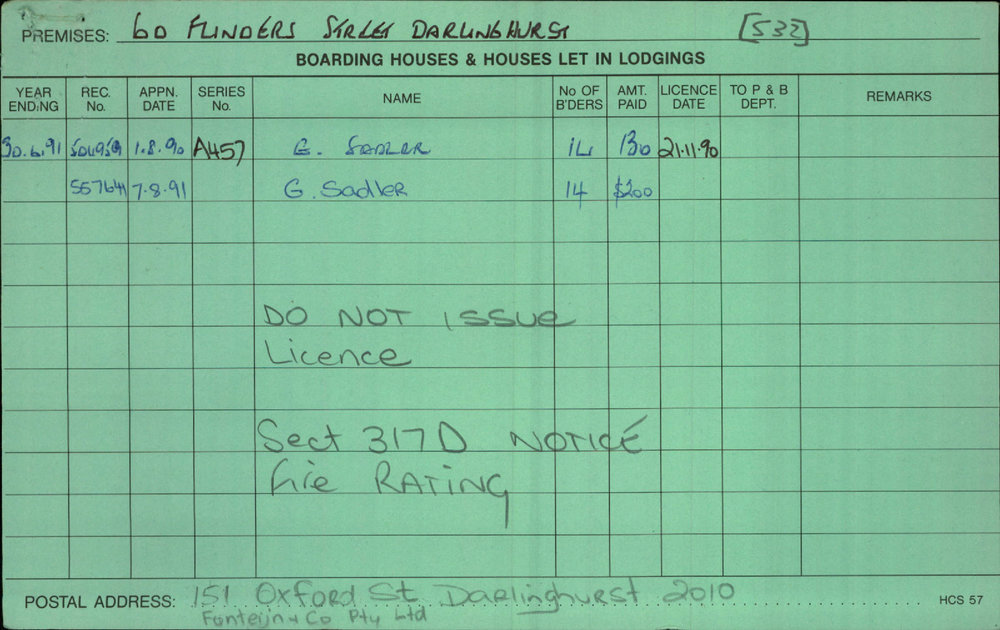 PREMISES: 60 FLINDERS STREET DARLINGHURST [532]
BOARDING HOUSES & HOUSES LET IN LODGINGS
YEAR ENDING REC. No. APPN. DATE SERIES No. NAME No OF B'DERS AMT. PAID LICENCE DATE TO P & B DEPT. REMARKS
30.6.91 1.8.90 A457 G. SADLER 14 130 21.11.90
557641 7.8.91 G. Sadler 14 $200
DO NOT ISSUE
Licence
Sect 317D NOTICE
Fire RATING
POSTAL ADDRESS: 151 Oxford St Darlinghurst 2010 HCS 57
Fonteijn & Co Pty Ltd